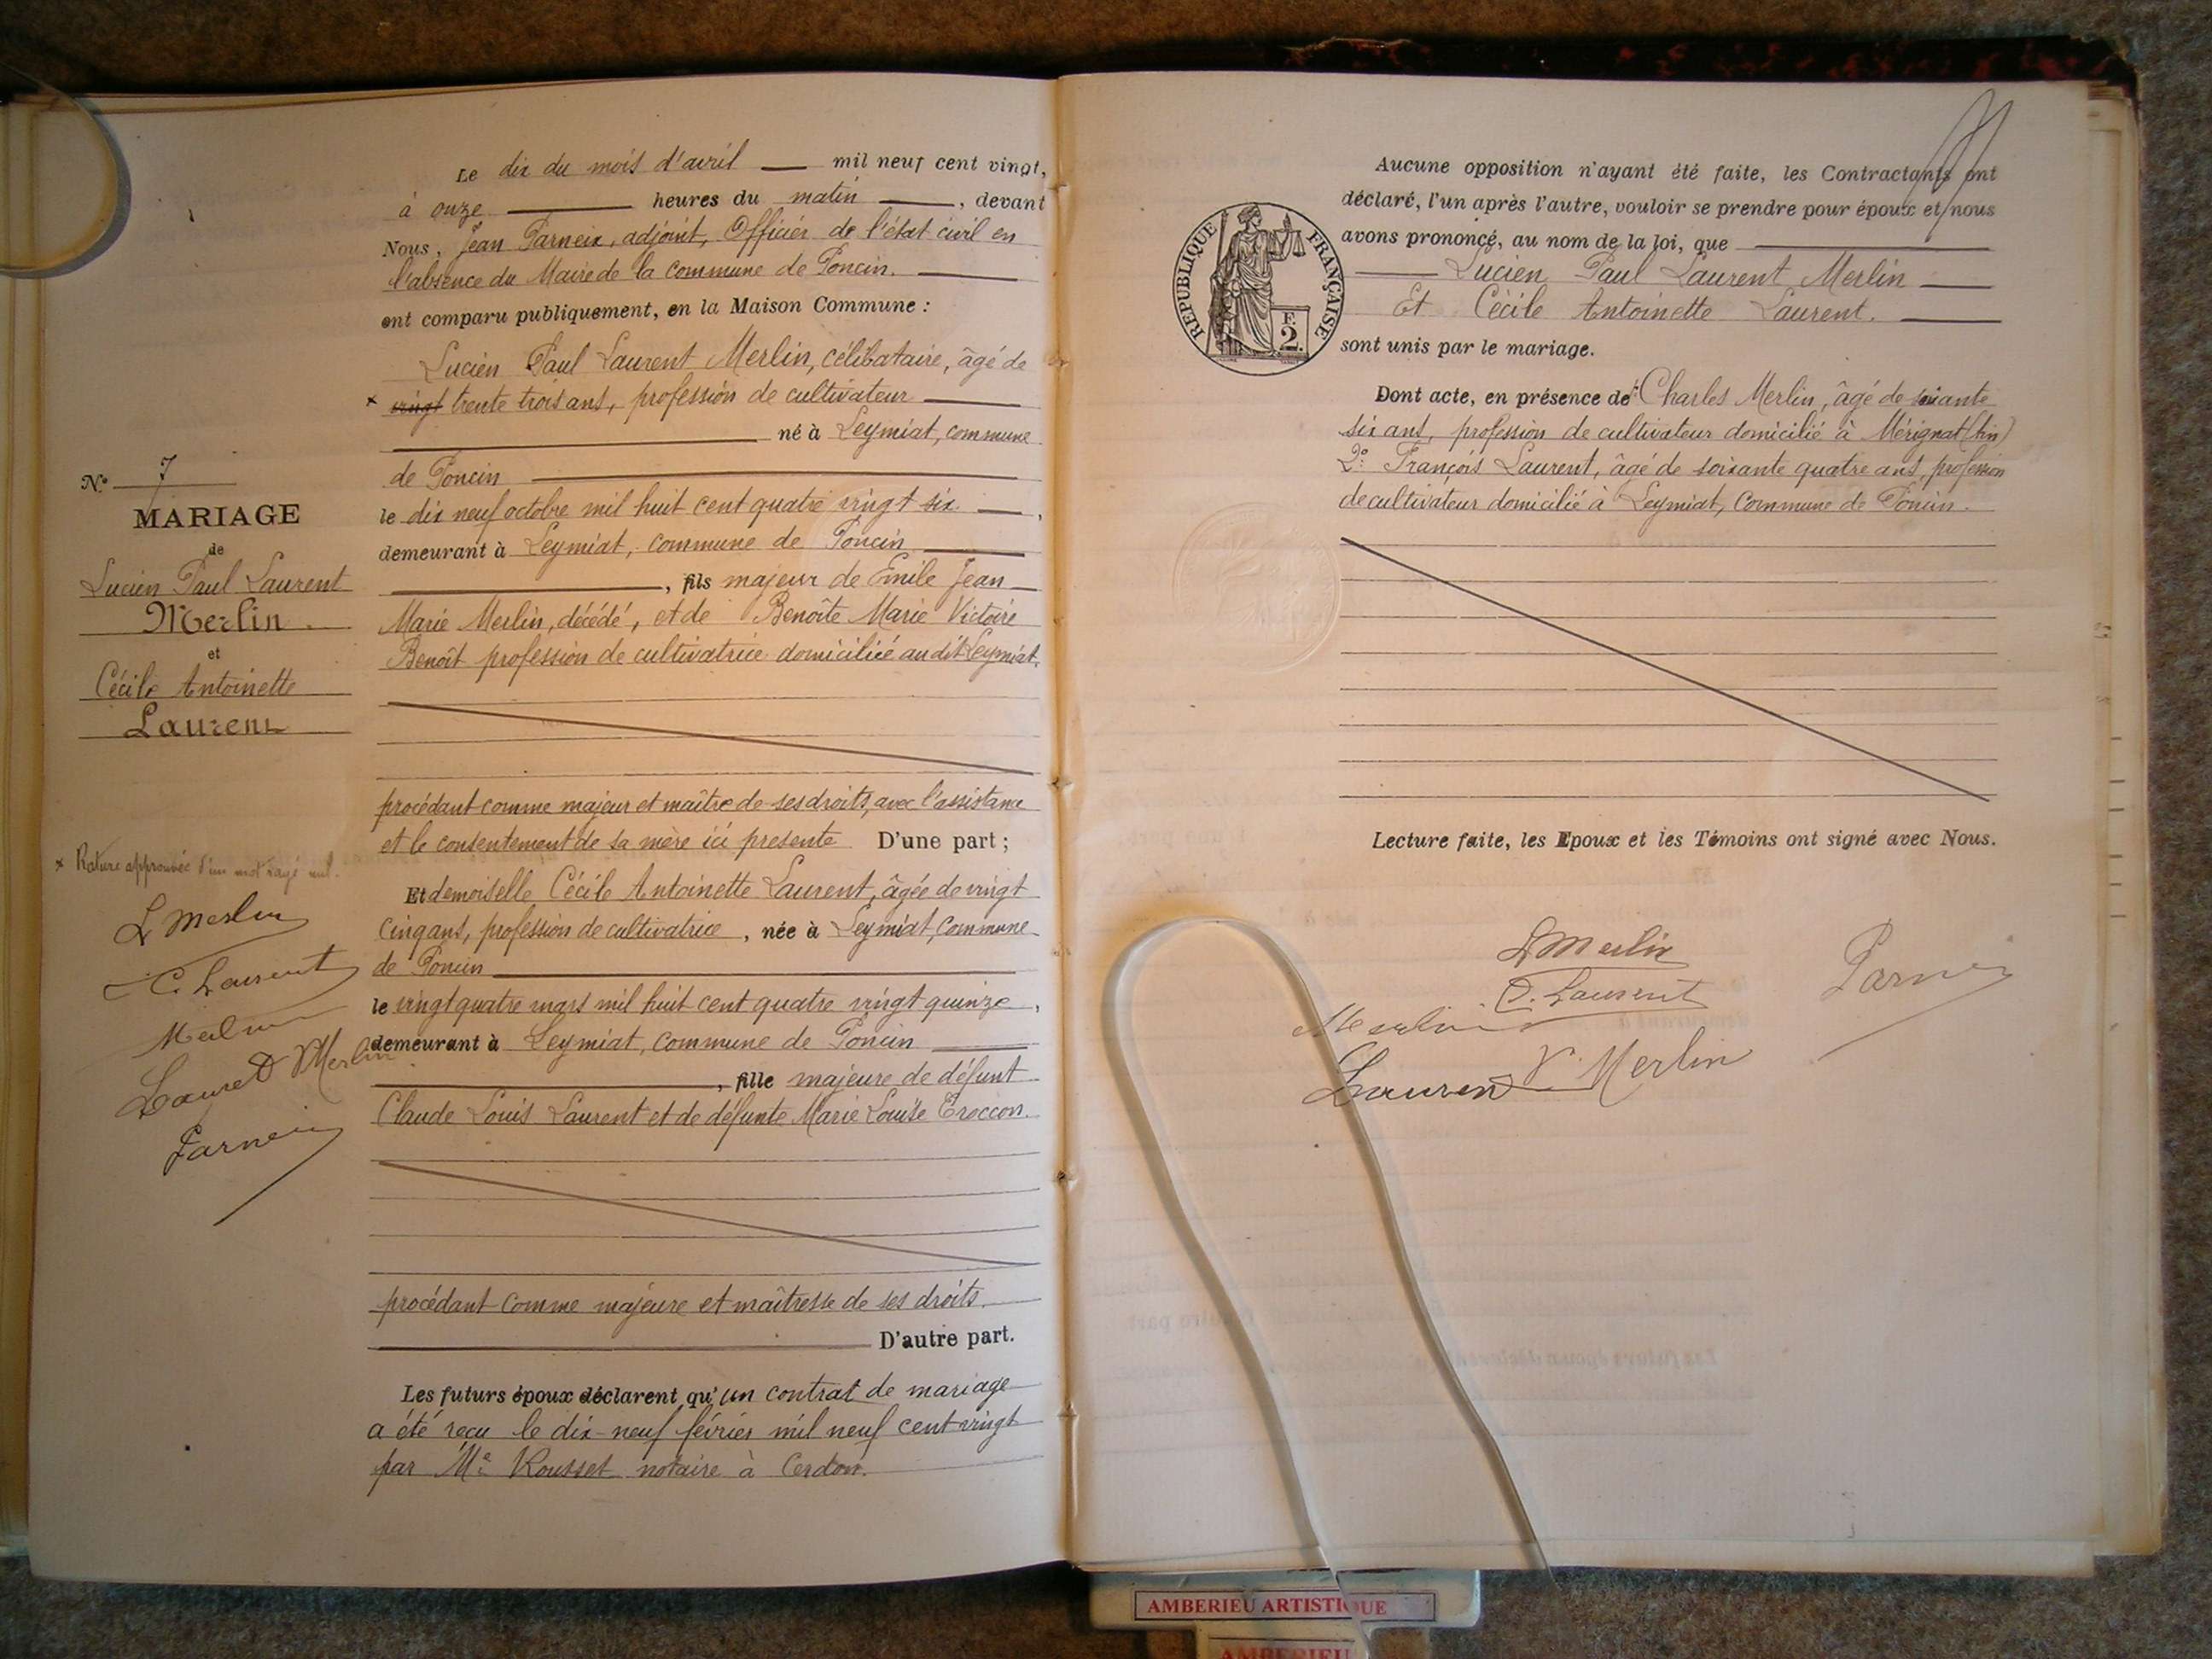 Le dix du mois d'avril mil neuf cent vingt,
à onze heures du matin, devant
Nous, Jean Parneix, adjoint, Officier de l'état civil en
l'absence du Maire de la commune de Poncin.
ont comparu publiquement, en la Maison Commune :
Lucien Paul Laurent Merlin, célibataire, âgé de
x vingt trente trois ans, profession de cultivateur
né à Leymiat, commune
de Poncin
le dix neuf octobre mil huit cent quatre vingt six.,
demeurant à Leymiat, commune de Poncin
, fils majeur de Emile Jean
Marie Merlin, décédé, et de Benoîte Marie Victoire
Benoît profession de cultivatrice domiciliée au dit Leymiat.
procédant comme majeur et maître de ses droits, avec l'assistance
et le consentement de sa mère ici présente D'une part ;
Et demoiselle Cécile Antoinette Laurent, âgée de vingt
cinq ans, profession de cultivatrice, née à Leymiat, commune
de Poncin
le vingt quatre mars mil huit cent quatre vingt quinze,
demeurant à Leymiat, commune de Poncin
, fille majeure de défunt
Claude Louis Laurent et de défunte Marie Louise Croccon.
procédant comme majeure et maîtresse de ses droits.
D'autre part.
Les futurs époux déclarent qu'un contrat de mariage
a été reçu le dix-neuf février mil neuf cent vingt
par Me Rousset notaire à Cerdon.
N° 7
MARIAGE
de
Lucien Paul Laurent
Merlin.
et
Cécile Antoinette
Laurent
x Rature approuvée d'un mot rayé nul.
L Merlin
C. Laurent
Merlin
Laurent V Merlin
Parneix
Aucune opposition n'ayant été faite, les Contractants ont
déclaré, l'un après l'autre, vouloir se prendre pour époux et nous
avons prononcé, au nom de la loi, que
Lucien Paul Laurent Merlin
Et Cécile Antoinette Laurent.
sont unis par le mariage.
Dont acte, en présence de 1° Charles Merlin, âgé de soixante
six ans, profession de cultivateur domicilié à Mérignat (Ain)
2° François Laurent, âgé de soixante quatre ans, profession
de cultivateur domicilié à Leymiat, commune de Poncin.
Lecture faite, les Epoux et les Témoins ont signé avec Nous.
L Merlin
C. Laurent
Parneix
Merlin
Laurent V. Merlin
REPUBLIQUE FRANÇAISE
F.
2.
AMBERIEU ARTISTIQUE
AMBERIEU